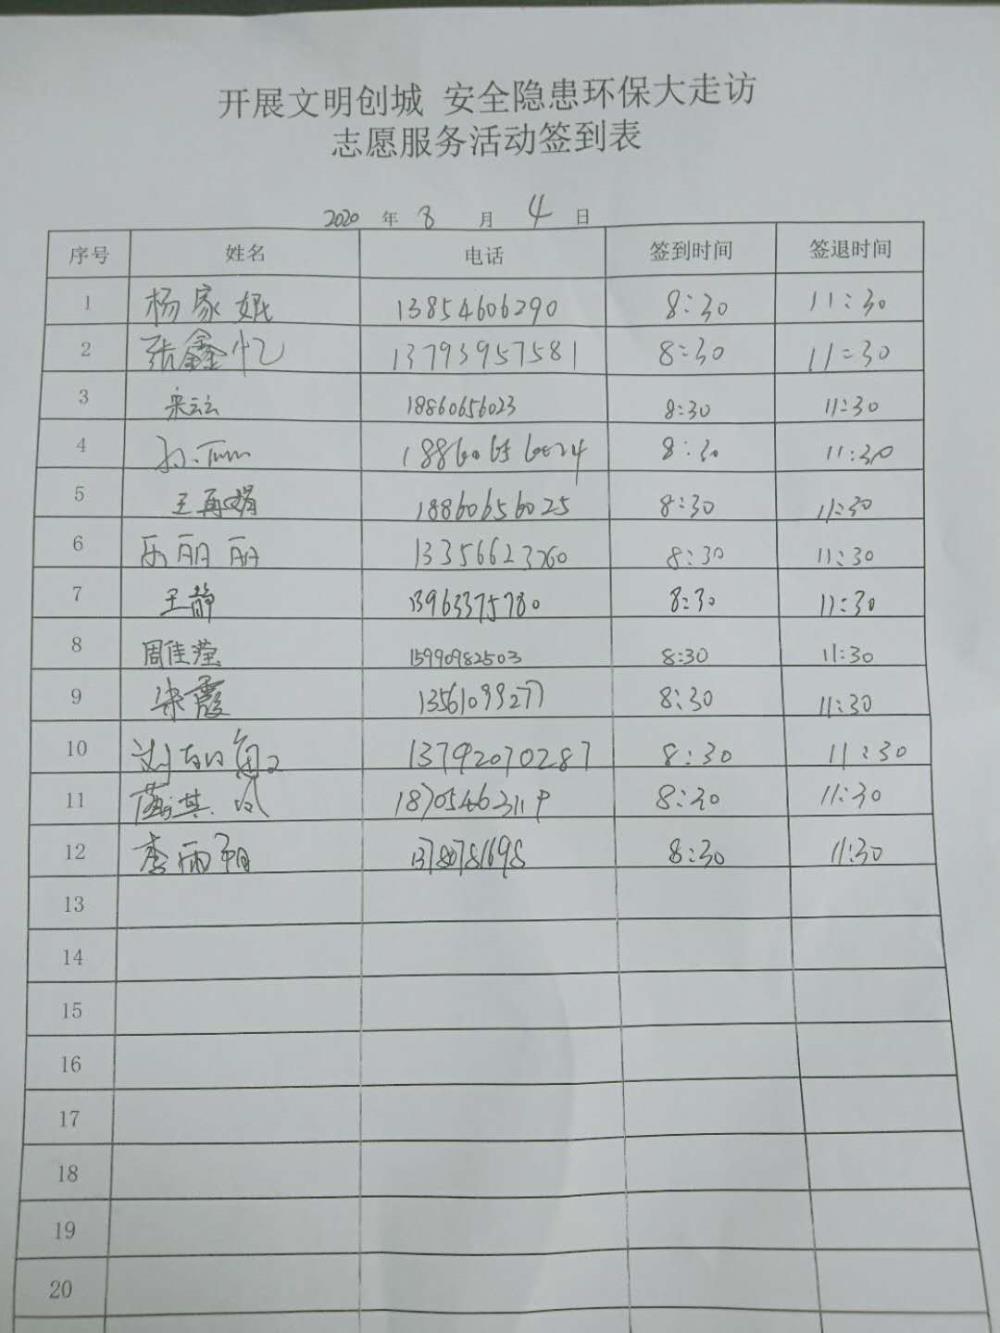 开展文明创城 安全隐患环保大走访
志愿服务活动签到表
2020 年 8 月 4 日
序号 姓名 电话 签到时间 签退时间
1 杨家 13854606290 8:30 11:30
2 张鑫忆 13793957581 8:30 11:30
3 18860656023 8:30 11:30
4 18860656024 8:30 11:30
5 王再娟 18860656025 8:30 11:30
6 乐丽丽 13356623260 8:30 11:30
7 王静 13963375780 8:30 11:30
8 周佳莹 15990982503 8:30 11:30
9 宋霞 13561099277 8:30 11:30
10 刘 13792070287 8:30 11:30
11 其 8:30 11:30
12 李雨 13780781698 8:30 11:30
13
14
15
16
17
18
19
20